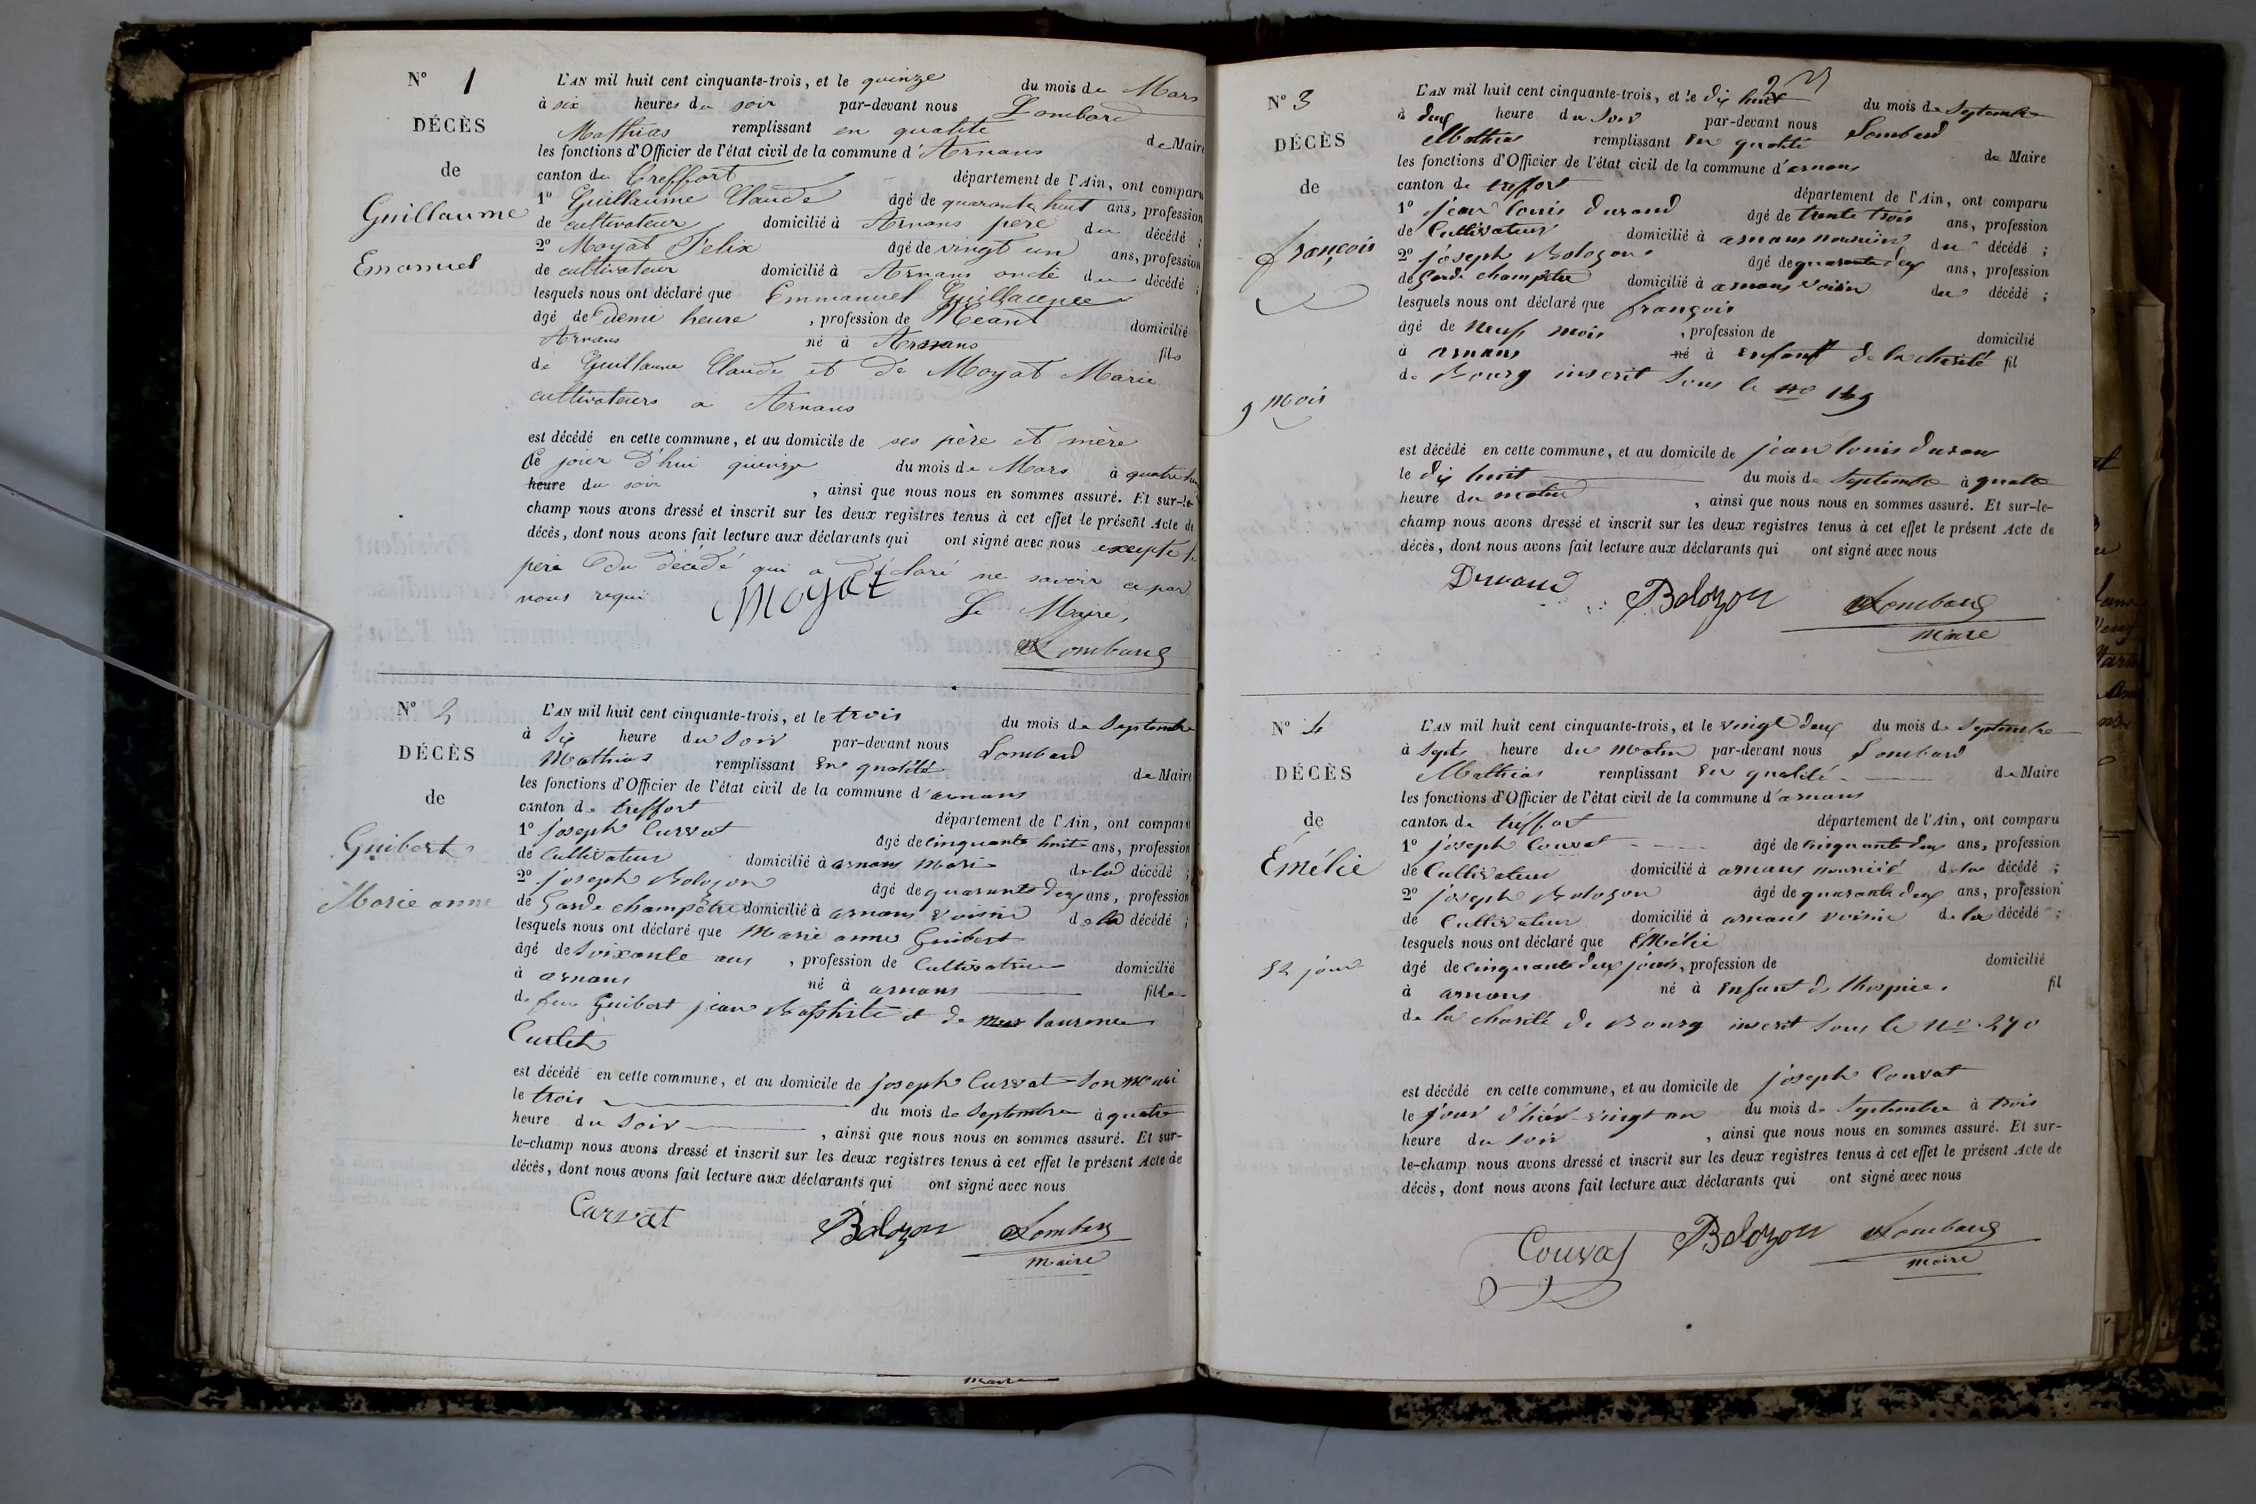 N° 1
DÉCÈS
de
Guillaume
Emanuel
L'AN mil huit cent cinquante-trois, et le quinze du mois de Mars
à six heures du soir par-devant nous Lombard
Mathias remplissant en qualité de Maire
les fonctions d'Officier de l'état civil de la commune d'Arnans
canton de Treffort département de l'Ain, ont comparu
1° Guillaume Claude âgé de quarante huit ans, profession
de cultivateur domicilié à Arnans père du décédé ;
2° Moyat Félix âgé de vingt un ans, profession
de cultivateur domicilié à Arnans oncle du décédé ;
lesquels nous ont déclaré que Emmanuel Guillaume
âgé de demi heure , profession de Néant domicilié
Arnans né à Arnans fils
de Guillaume Claude et de Moyat Marie
cultivateurs a Arnans
est décédé en cette commune, et au domicile de ses père et mère
ce jour d'hui quinze du mois de Mars à quatre
heure du soir , ainsi que nous nous en sommes assuré. Et sur-le-
champ nous avons dressé et inscrit sur les deux registres tenus à cet effet le présent Acte de
décès, dont nous avons fait lecture aux déclarants qui ont signé avec nous excepté le
père du décédé qui a déclaré ne savoir
nous requi
Moyat
Le Maire,
Lombard
N° 2
DÉCÈS
de
Guibert
Marie anne
L'AN mil huit cent cinquante-trois, et le trois du mois de Septembre
à Six heure du Soir par-devant nous Lombard
Mathias remplissant En qualité de Maire
les fonctions d'Officier de l'état civil de la commune d'arnans
canton de treffort département de l'Ain, ont comparu
1° joseph Curvat âgé de cinquante huit ans, profession
de Cultivateur domicilié à arnans Mari de la décédé ;
2° joseph Bolozon âgé de quarante deux ans, profession
de Garde champêtre domicilié à arnans voisin de la décédé ;
lesquels nous ont déclaré que Marie anne Guibert
âgé de Soixante ans , profession de Cultivatrice domicilié
à arnans né à arnans fille
de feu Guibert jean Baptiste et de laurence
Curlet
est décédé en cette commune, et au domicile de joseph Curvat Son Mari
le trois du mois de Septembre à quatre
heure du Soir , ainsi que nous nous en sommes assuré. Et sur-
le-champ nous avons dressé et inscrit sur les deux registres tenus à cet effet le présent Acte de
décès, dont nous avons fait lecture aux déclarants qui ont signé avec nous
Curvat Bolozon Lombard
Maire
Maire
N° 3
DÉCÈS
de
françois
9 Mois
L'AN mil huit cent cinquante-trois, et le dix huit du mois de Septembre
à deux heure du Soir par-devant nous Lombard
Mathias remplissant En qualité de Maire
les fonctions d'Officier de l'état civil de la commune d'arnans
canton de treffort département de l'Ain, ont comparu
1° jean louis durand âgé de trente trois ans, profession
de Cultivateur domicilié à arnans du décédé ;
2° joseph Bolozon âgé de quarante deux ans, profession
de Garde champêtre domicilié à arnans voisin du décédé ;
lesquels nous ont déclaré que françois
âgé de Neuf mois , profession de domicilié
à arnans né à Enfant de la charité fil
de Bourg inscrit Sous le no 149
est décédé en cette commune, et au domicile de jean louis duran
le dix huit du mois de Septembre à quatre
heure du matin , ainsi que nous nous en sommes assuré. Et sur-le-
champ nous avons dressé et inscrit sur les deux registres tenus à cet effet le présent Acte de
décès, dont nous avons fait lecture aux déclarants qui ont signé avec nous
Durand Bolozon Lombard
Maire
N° 4
DÉCÈS
de
Émélie
52 jours
L'AN mil huit cent cinquante-trois, et le vingt deux du mois de Septembre
à Sept heure du Matin par-devant nous Lombard
Mathias remplissant En qualité de Maire
les fonctions d'Officier de l'état civil de la commune d'arnans
canton de treffort département de l'Ain, ont comparu
1° joseph Convat âgé de cinquante deux ans, profession
de Cultivateur domicilié à arnans de la décédé ;
2° joseph Bolozon âgé de quarante deux ans, profession
de Cultivateur domicilié à arnans voisin de la décédé ;
lesquels nous ont déclaré que Émélie
âgé de cinquante deux jours , profession de domicilié
à arnans né à Enfant de lhospice fil
de la charité de Bourg inscrit Sous le No 270
est décédé en cette commune, et au domicile de joseph Convat
le jour d'hier vingt un du mois de Septembre à trois
heure du Soir , ainsi que nous nous en sommes assuré. Et sur-
le-champ nous avons dressé et inscrit sur les deux registres tenus à cet effet le présent Acte de
décès, dont nous avons fait lecture aux déclarants qui ont signé avec nous
Couvat Bolozon Lombard
Maire